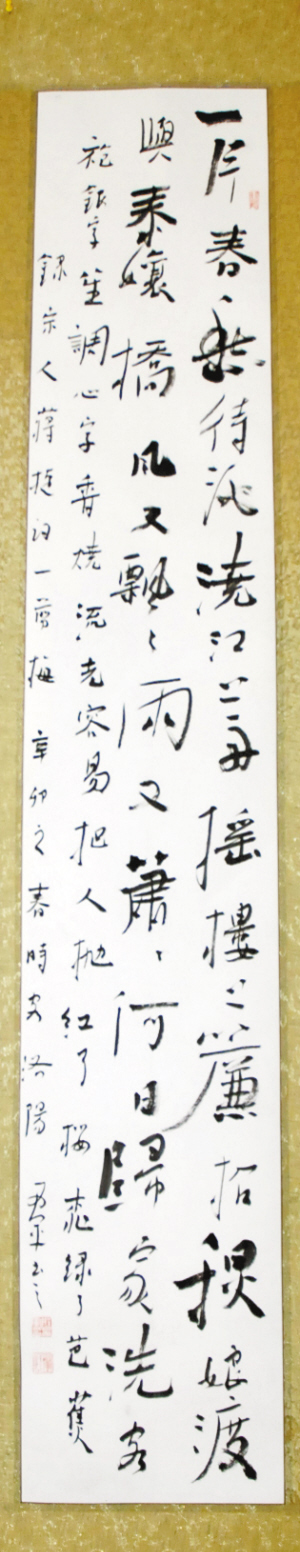 一片春愁待酒澆江上舟搖樓上簾招秋娘渡
與泰孃橋風又飄飄雨又蕭蕭何日歸家洗客
袍銀字笙調心字香燒流光容易把人拋紅了櫻桃綠了芭蕉
錄宋人蔣捷詞一剪梅辛卯之春時客洛陽